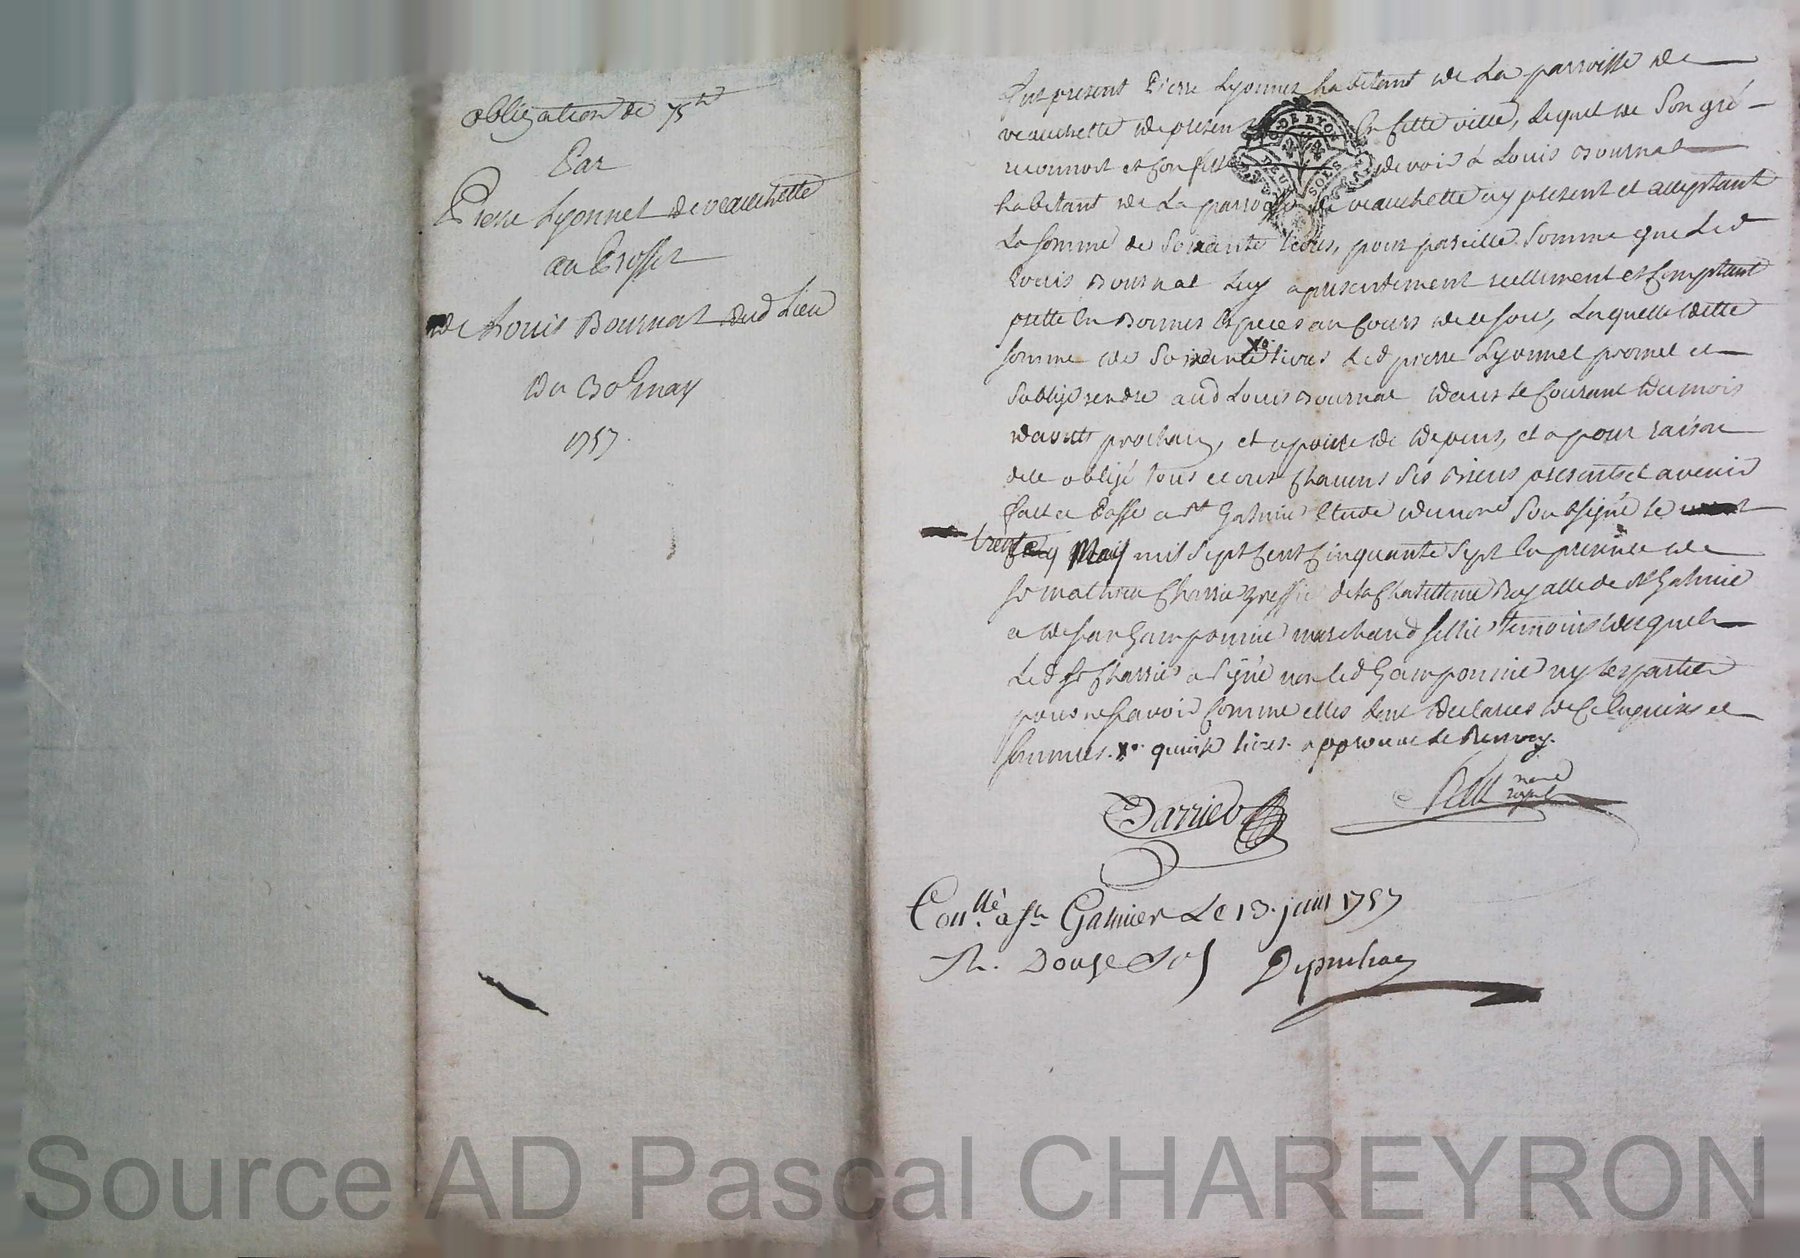 obligation de 75ᵗᵗ
Par
Pierre Lyonnet de veauchette
au Proffit
de Louis Bournat dud Lieu
Du 30ᵉ may
1757.
Fut present Pierre Lyonnet habitant de La parroisse de
veauchette de present En Cette ville, Lequel de Son gré
reconnoit et Confesse devoir à Louis Bournat
habitant de La parroisse de veauchette icy present et acceptant
La somme de Soixante livres, pour pareille Somme que Led
Louis Bournat Luy a presentement reellement et Comptant
prette En Bonnes Especes au Cours de ce jour, Laquelle ditte
somme de Soixante Xᵉ livres Led pierre Lyonnet promet et
Soblige rendre aud Louis Bournat dans le Courant du mois
daoust prochain, et a peine de depens, et a pour raison
de ce obligé tous et Chacuns Ses Biens presents et avenir
fait et Passé a Sᵗ Galmier Etude du noʳᵉ Soubsigné le
trente May mil Sept Cent Cinquante Sept En presence de
Sʳ mathieu Charrie greffier de la Chatellenie Royalle de St Galmie
et de Jean Gamponnie marchand sellier temoins desquels
Led Sʳ Charrier a Signé non led Gamponnie ny les parties
pour ne scavoir Comme elles ont Declarees de Ce Enquises et
sommées. Xᵉ quinze livres. approuvé Le Renvoy.
noʳᵉ
royal
Conˡˡᵉ a Sᵗ Galmier Le 13. juin 1757
R. Douze Sols
SOLS
Source AD Pascal CHAREYRON